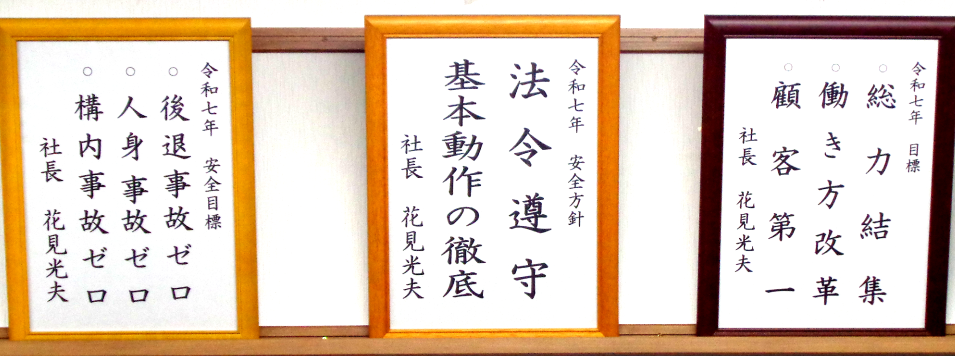 令和七年 安全目標
○後退事故ゼロ
○人身事故ゼロ
○構内事故ゼロ
社長 花見光夫
令和七年 安全方針
法令遵守
基本動作の徹底
社長 花見光夫
令和七年 目標
○総力結集
○働き方改革
○顧客第一
社長 花見光夫